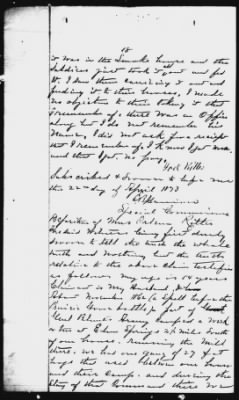 18
it was in the Smoke house and the
Soldiers just took it all out and fed
it. I saw them carrying it out and
feeding it to their horses, I made
no objection to their taking it that
I remember of, there was an Officer
along but I do not remember his
name, I did not ask for a receipt
that I remember of, I know I got none,
and that I got no pay.
Kittle
Subscribed & Sworn to before me
the 22nd day of April 1873
Special Commissioner
Deposition of Mrs Kittle
the said Witness being first duly
Sworn to tell the truth the whole
truth and nothing but the truth
relative to the above claim testifies
as follows My age is 54 years
Claimant is my Husband,
About November 1862 a Spell before the
Prairie Grove battle, part of
Genl Blunt's Army camped a week
or two at Elm Springs 2½ miles South
of our house. running the Mill
there, we had one gang of 27 fat
hogs that used between our house
and their Camp. and during the
Stay of that Command there we